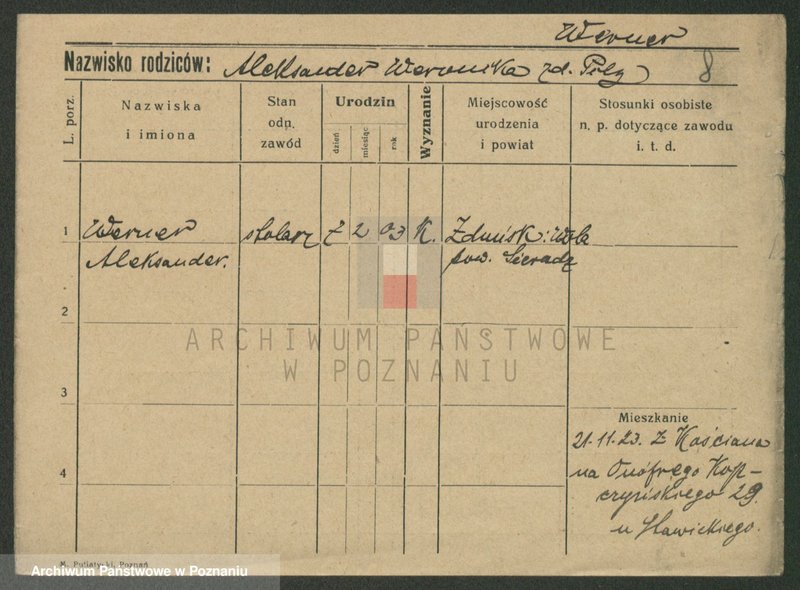 Werner
Nazwisko rodziców: Aleksander Weronika zd. 8
L. porz.
Nazwiska i imiona
Stan odn. zawód
Urodzin
dzień miesiąc rok
Wyznanie
Miejscowość urodzenia i powiat
Stosunki osobiste n. p. dotyczące zawodu i. t. d.
1 Werner stolarz 2 03 K. Zduńsk: Wola
Aleksander. pow. Sieradz
2
ARCHIWUM PAŃSTWOWE
W POZNANIU
3
Mieszkanie
21.11.23. z Kościana
4 na Onufrego Kop-
czyńskiego 29.
u
M. Putiatycki, Poznań
Archiwum Państwowe w Poznaniu